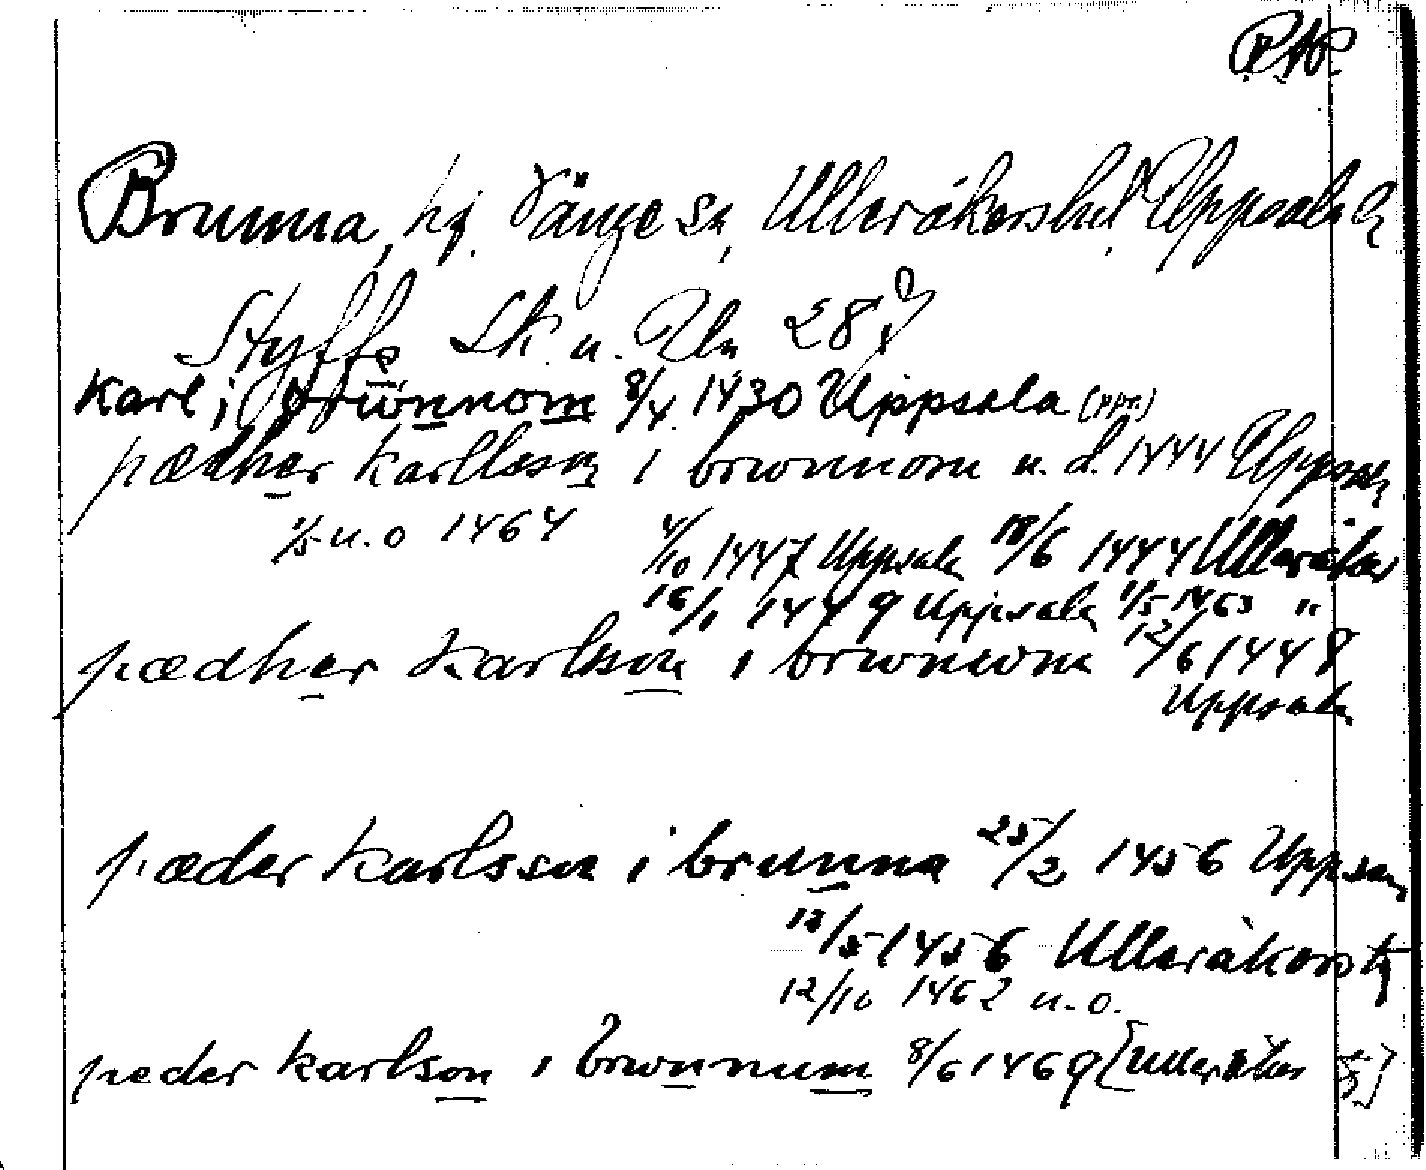 Brunna, hg. Vänge sn, Ulleråkers hd. Uppsala l.
Styffe Sk. u. Un 287
karl i brwnnom 8/4 1430 Uppsala (ppr.)
pædher karllsson i brwnnom u. d. 1444 Uppsala
1/5 u. o 1464 4/10 1447 Uppsala 18/6 1444 Ulleråker
16/1 1449 Uppsala 1/5 1463 "
pædher karlsson i brwnwm 12/6 1448
Uppsala
pæder karlsson i brunna 25/2 1456 Uppsala
18/5 1456 Ulleråkers tg
12/10 1462 u. o.
peder karlson i brwnnum 8/6 1469 [Ulleråkers tg]